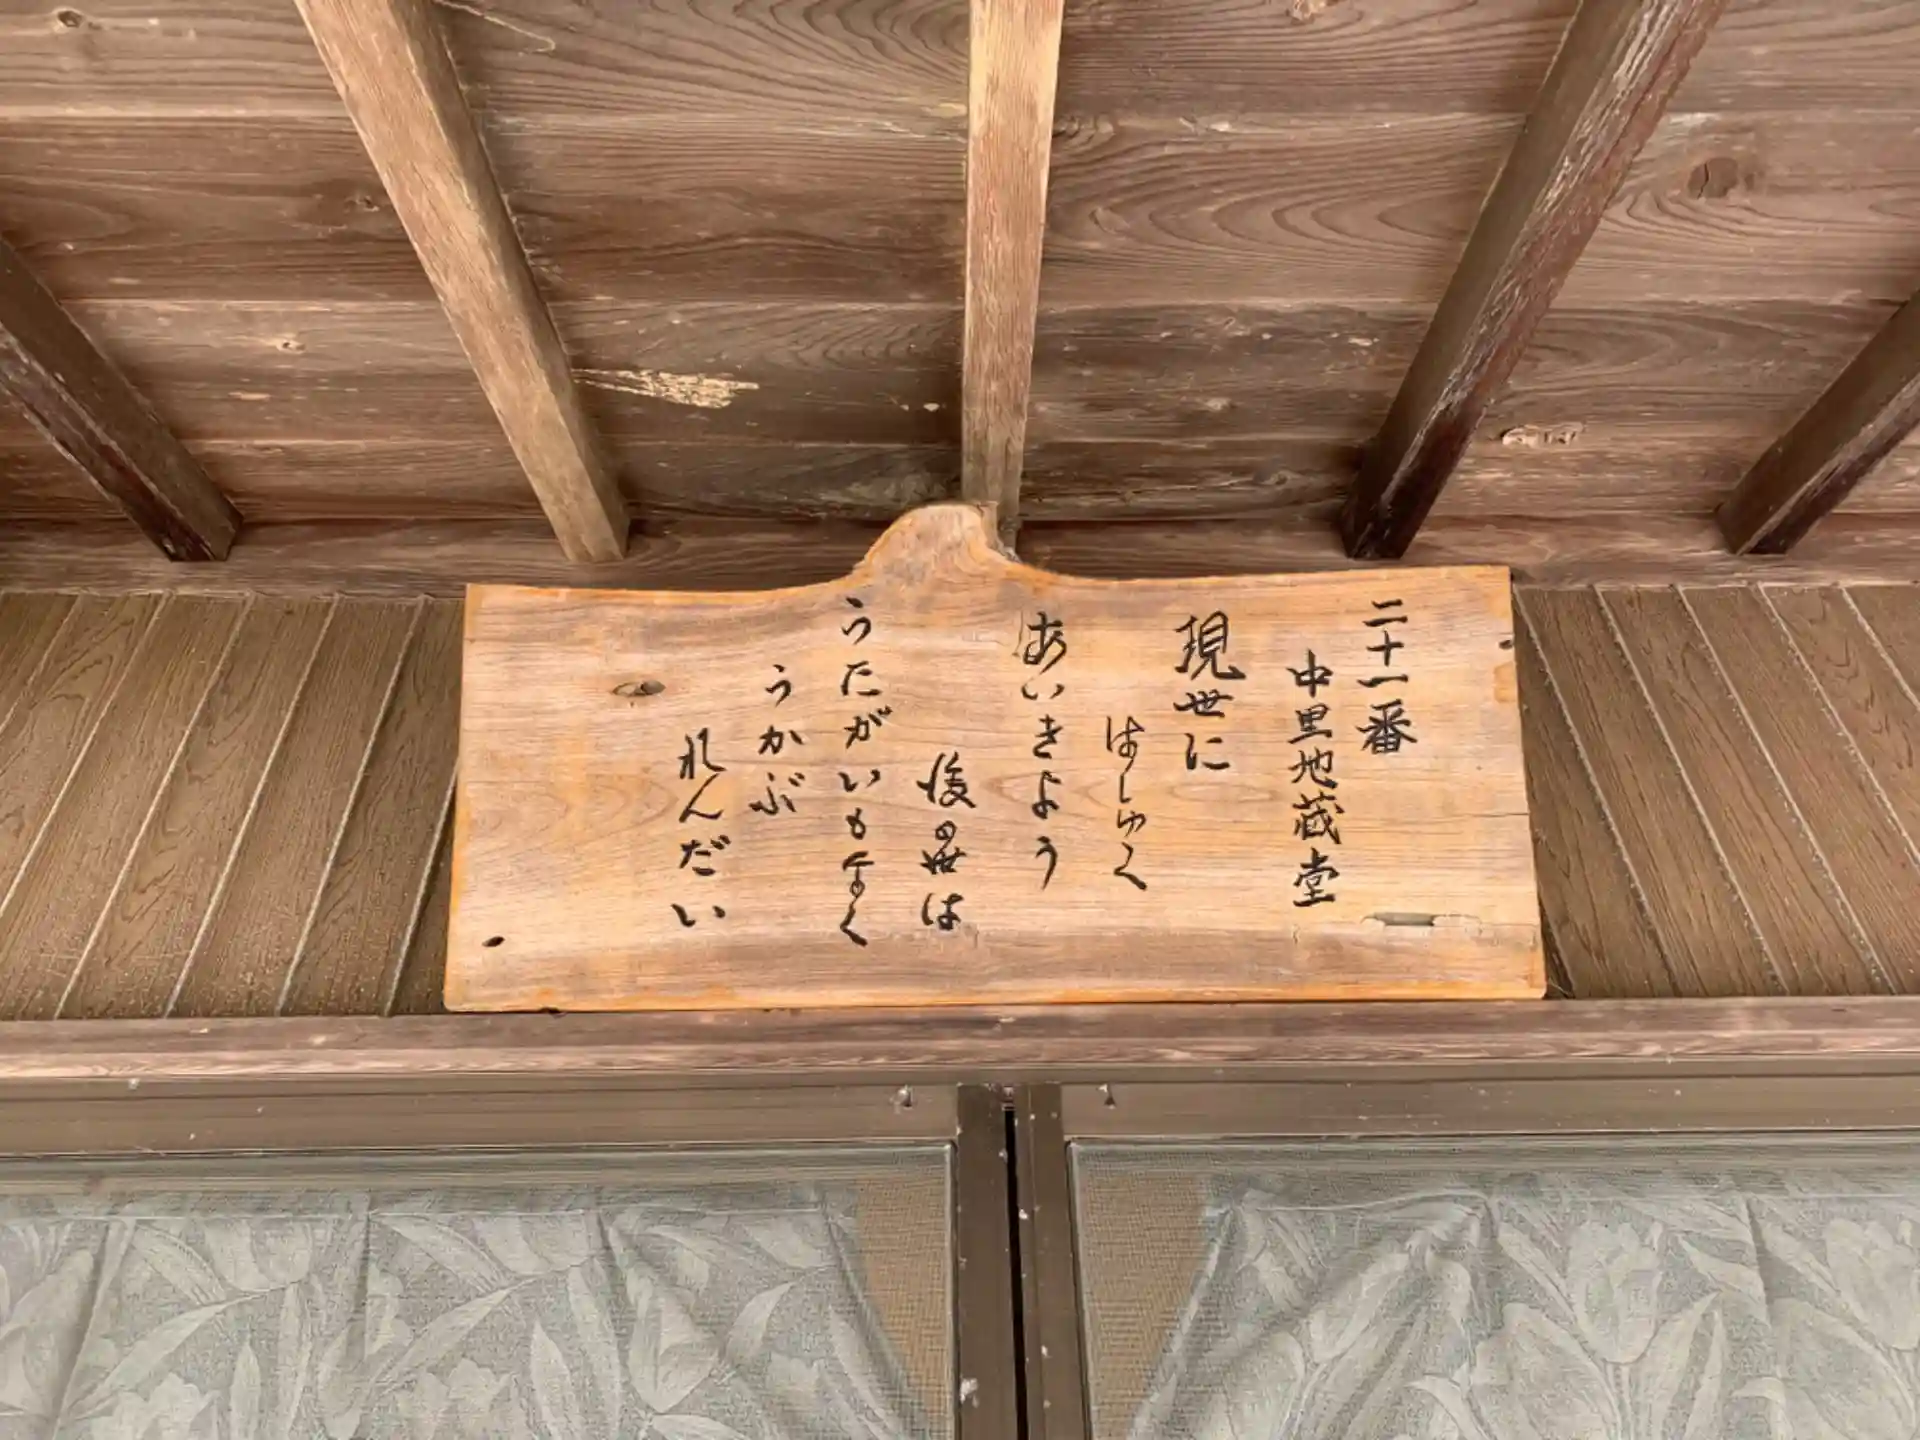 二十一番
中里地蔵堂
現世に
はしゅく
あいきよう
後の世は
うたがいもなく
うかぶ
れんだい